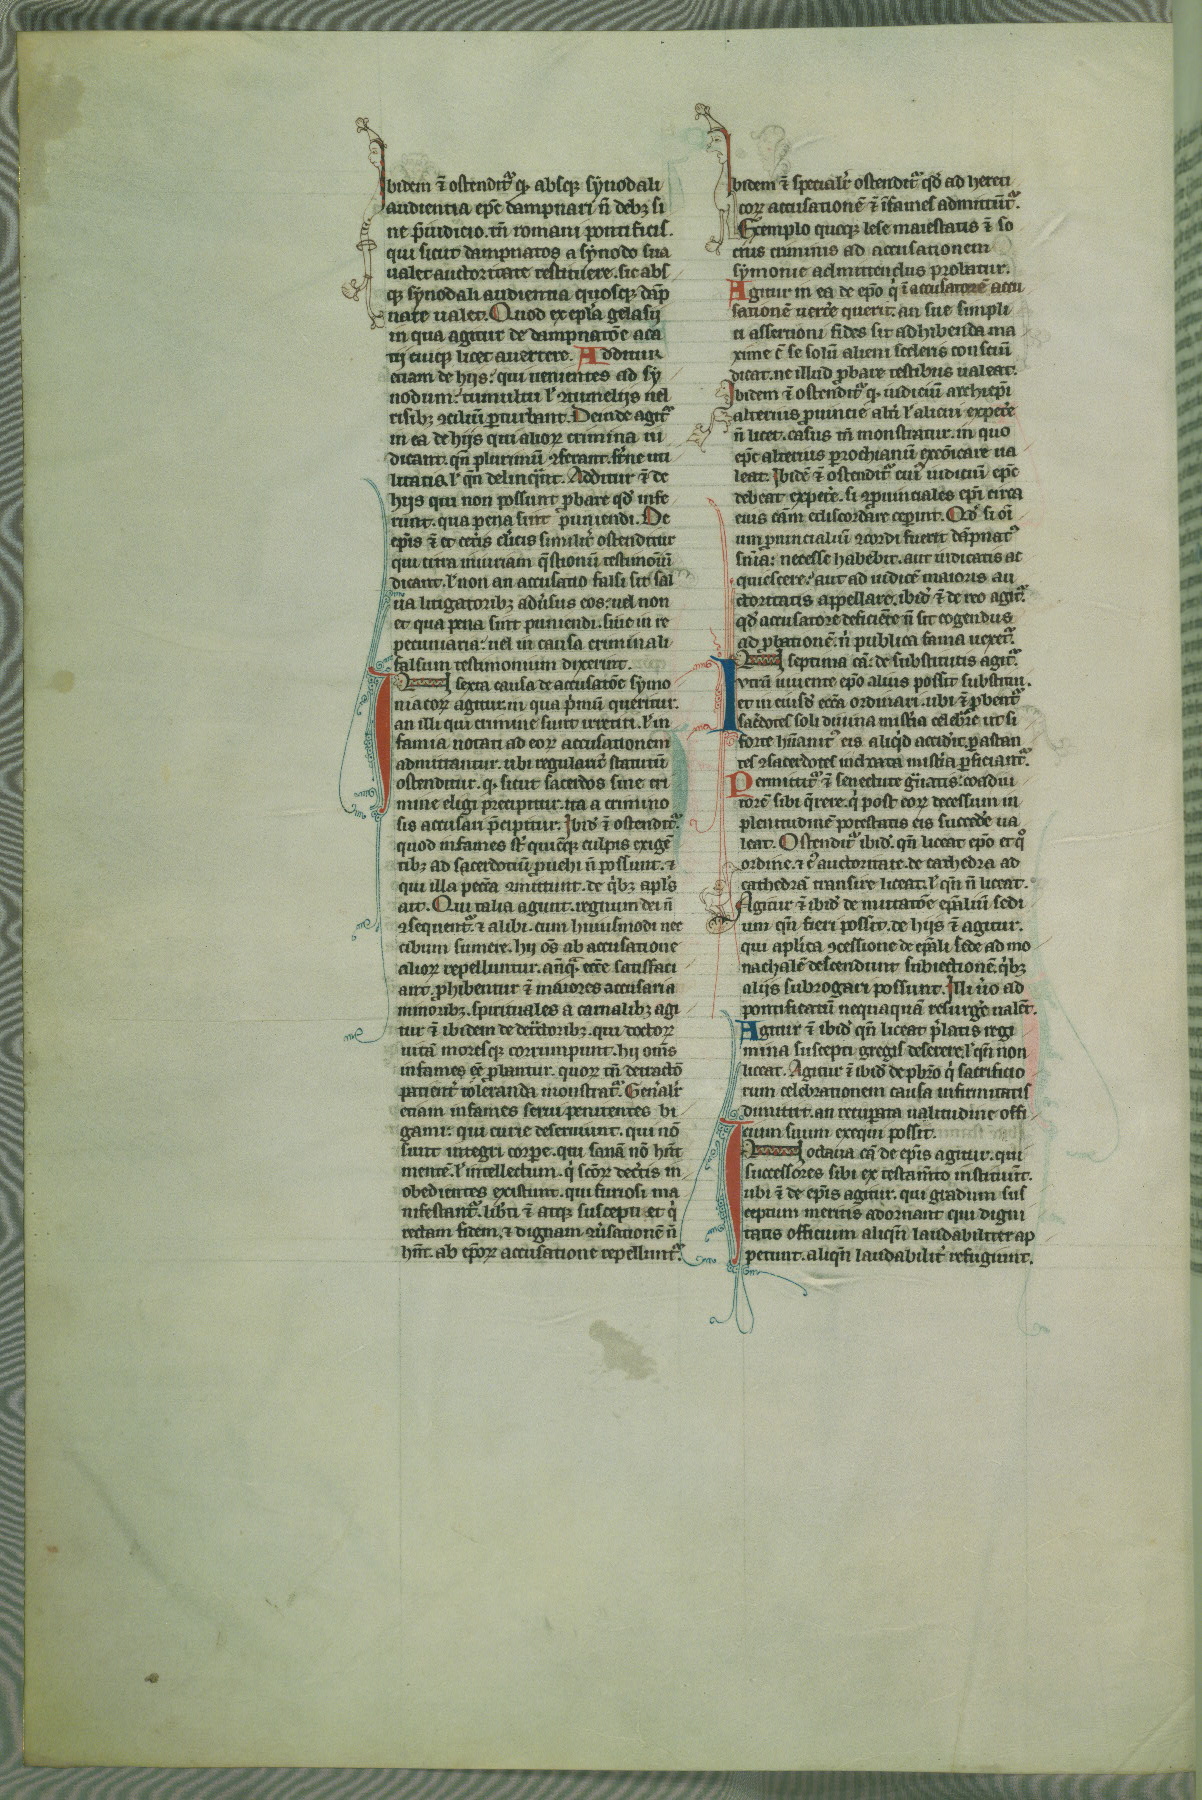 Ibidem ē ostendit᷑ q̛ absq; synodali
audientia ep̄c dampnari n̄ deb; si
ne p̄iudicio. tn̄ romani pontificis.
qui sicut dampnatos a synodo sua
ualet auctoritate restituere. sic abs
q; synodali audientia quosq; dāp
nare ualet. Quod ex ep̄la gelasij
in qua agitur de dampnatōe aca
tij cuiq; licet auertere. Additur
etiam de hijs: qui uenientes ad sy
nodum: tumultu l̓ ꝯtumelijs uel
risib; ꝯciliū ꝑturbant. Deinde agit᷑
in ea de hijs qui alioꝝ crimina iu
dicant. qn̄ plurimū
litatis. l̓ qn̄ delinq̄nt. Additur ē de
hijs qui non possunt ꝓbare qd̓ infe
runt. qua pena sint puniendi. De
ep̄is ē et cet̓is cl̓icis similit̓ ostenditur
qui citra iniuriam q̄stionū testimoniū
dicant. l̓ non an accusatio falsi sit sal
ua litigatorib; adūsus eos: uel non
et qua pena sint puniendi. siue in re
pecuniaria: uel in causa criminali
falsum testimonium dixerint.
In sexta causa de accusatōe symo
niacoꝝ agitur. in qua p̓mū queritur.
an illi qui crimine sunt irretiti. l̓ in
famia notati ad eoꝝ accusationem
admittantur. ubi regularit̓ statutū
ostenditur. q̛ sicut sacerdos sine cri
mine eligi precipitur. ita a crimino
sis accusari p̄cipitur. Ibid̓ ē ostendit᷑.
quod infames s̄t quicūq; culpis exigē
tib; ad sacerdotiū ꝓuehi n̄ possunt. ⁊
qui illa pecc̄a ꝯmittunt. de q̓b; apl̓s
ait. Qui talia agunt. regnum dei n̄
ꝯsequent᷑. ⁊ alibi. cum huiusmodi nec
cibum sumere. hij om̄s ab accusatione
alioꝝ repelluntur. anq̄ᷓ. ecc̄e satisfaci
ant. ꝓhibentur ē maiores accusari a
minorib;. spirituales a carnalib; agi
tur ē ibidem de det̓ctorib;. qui doctoꝝ
uitā moresq; corrumpunt. hij om̄s
infames ee̓ ꝓbantur. quoꝝ tn̄ detractō
patient̓ toleranda monstrat᷑. Gen̓alit̓
etiam infames serui penitentes bi
gami: qui curie deseruiunt. qui nō
sunt integri corpe̓. qui sanā nō hn̄t
mentē. l̓ intellectum. q̓ sc̄oꝝ decr̓tis in
obedientes existunt. qui furiosi ma
nifestant᷑. lib̓ti ē atq; suscepti et q̓
rectam fidem. ⁊ dignam ꝯūsationē n̄
hn̄t. ab ep̄oꝝ accusatione repellunt᷑.
Ibidem ē specialit̓ ostendit᷑ qd̓ ad hereti
coꝝ accusationē ē īfames admittūt᷑.
Exemplo quoq; lese maiestatis ē so
cius criminis ad accusationem
symonie admittendus probatur.
Agitur in ea de ep̄o q̓ ī accusatorē accu
sationē uert̓e querit. an sue simpli
ci assertioni fides sit adhibenda ma
xime c̄ se solū alieni sceleris consciū
dicat. ne illud ꝓbare testibus ualeat.
Ibidem ē ostendit᷑ q̛ iudiciū archiep̄i
alterius ꝓuincie alicui expet̓e
n̄ licet. casus tn̄ monstratur. in quo
ep̄c alterius parochianū excōicare ua
leat. Ibid̓ ē ostendit᷑ cui᷒ iudiciū ep̄c
debeat expet̓e. si ꝯprouinciales ep̄i circa
eius cām ediscordare ceperint. Qd̓ si oī
um prouincialiū ꝯcordi fuerit dāpnat᷒
sn̄ia: necesse habebit. aut iudicatis ac
quiescere: aut ad iudicē maioris au
ctoritatis appellare. ibid̓ ē de reo agit᷑.
qd̓ accusatore deficiēte n̄ sit cogendus
ad ꝓbationē. n̓ publica fama uexet᷑.
In septima cā: de substitutis agit᷑.
Vtrū uiuente ep̄o alius possit substitui.
et in eiusd̓ ecc̄a ordinari. ubi ē p̄bent᷑
sac̓dotes soli diuina mist̓ia celebre̓ ut si
forte hūanit᷒ eis aliq̓d accid̓it. ꝑ astan
tes ꝯsacerdotes inchoata mist̓ia ꝑficiant᷑.
Permittit᷑ ē senectute gᷓuatis: coadiu
torē sibi q̓rere. q̓ post eoꝝ decessum in
plenitudinē potestatis eis succede̓ ua
leat. Ostendit᷑ ibid̓. qn̄ liceat ep̄o et q̊
ordine. ⁊ c᷒ auctoritate. de cathedra ad
cathedrā transire liceat. l̓ qn̄ n̄ liceat.
Agitur ē ibid̓ de mutatōe ep̄aliū sedi
um qn̄ fieri possit. de hijs ē agitur.
qui ap̄lica ꝯcessione de ep̄ali sede ad mo
nachalē descendunt subiectionē. q̓b;
alijs subrogari possunt. Illi ūo ad
pontificatū nequaquā resurge̓ ualēt.
Agitur ē ibid̓ qn̄ liceat p̓latis regi
mina suscepti gregis deserere. l̓ qn̄ non
liceat. Agitur ē ibid̓ de pb̓ro q̓ sacrificio
rum celebrationem causa infirmitatis
dimittit. an recuꝑata ualitudine offi
cium suum exequi possit.
In octaua cā de ep̄is agitur. qui
successores sibi ex testam̄to instituūt.
ubi ē de ep̄is agitur. qui gradum sus
ceptum meritis adornant qui digni
tatis officium aliqn̄ laudabiliter ap
petunt. aliqn̄ laudabilit̓ refugiunt.